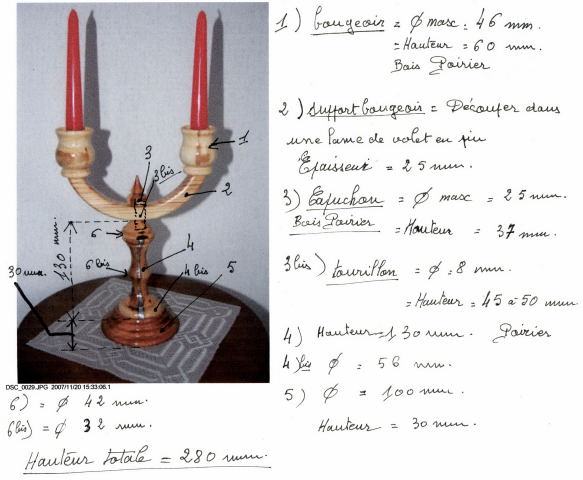 1) bougeoir = Ø maxc = 46 mm.
= Hauteur = 60 mm.
Bois Poirier
2) Support bougeoir = Découper dans
une lame de volet en pin
Epaisseur = 25 mm.
3) Capuchon = Ø maxc = 25 mm.
Bois Poirier = Hauteur = 37 mm.
3bis) tourillon = Ø = 8 mm.
= Hauteur = 45 à 50 mm.
4) Hauteur = 130 mm. Poirier
4)bis Ø = 56 mm.
5) Ø = 100 mm.
Hauteur = 30 mm.
1
3
3bis
2
6
4
6bis
4bis
5
130 mm.
30 mm.
DSC_0029.JPG 2007/11/20 15:33:06.1
6) = Ø 42 mm.
6bis) = Ø 32 mm.
Hauteur totale = 280 mm.